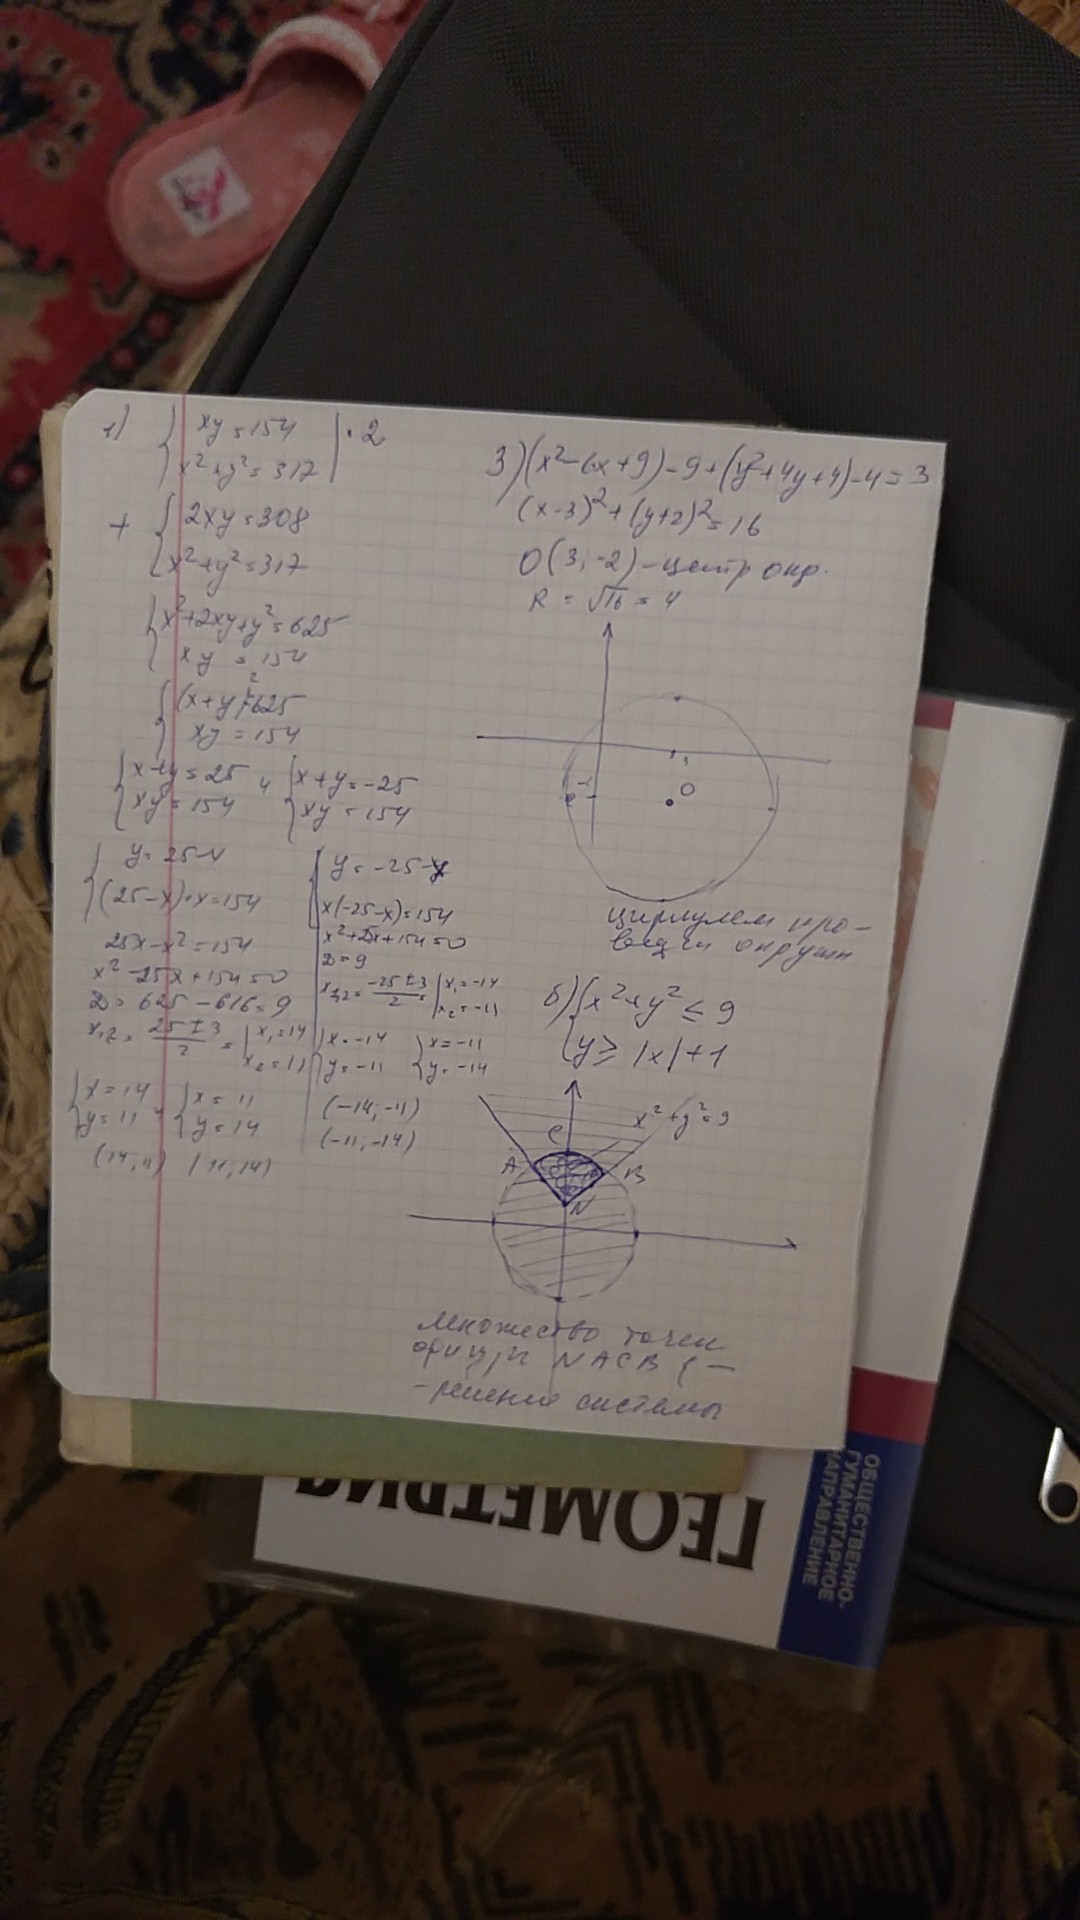 1) { xy = 154 | · 2
x² + y² = 317
+ { 2xy = 308
x² + y² = 317
{ x² + 2xy + y² = 625
xy = 154
{ (x + y)² = 625
xy = 154
{ x + y = 25 и { x + y = -25
xy = 154 xy = 154
{ y = 25 - x
(25 - x) · x = 154
25x - x² = 154
x² - 25x + 154 = 0
D = 625 - 616 = 9
x₁,₂ = (25 ± 3)/2 = | x₁ = 14
x₂ = 11
{ x = 14 { x = 11
y = 11 y = 14
(14, 11) (11, 14)
{ y = -25 - x
x(-25 - x) = 154
x² + 25x + 154 = 0
D = 9
x₁,₂ = (-25 ± 3)/2 = | x₁ = -14
x₂ = -11
{ x = -14 { x = -11
y = -11 y = -14
(-14, -11)
(-11, -14)
3) (x² - 6x + 9) - 9 + (y² + 4y + 4) - 4 = 3
(x - 3)² + (y + 2)² = 16
O (3, -2) - центр окр.
R = √16 = 4
3
O
циркулем про-
веди окружн
б) { x² + y² ≤ 9
y ≥ |x| + 1
x² + y² = 9
C
A B
N
множество точек
фигуры NACB -
- решение системы
ГЕОМЕТРИЯ
ОБЩЕСТВЕННО-
ГУМАНИТАРНОЕ
НАПРАВЛЕНИЕ